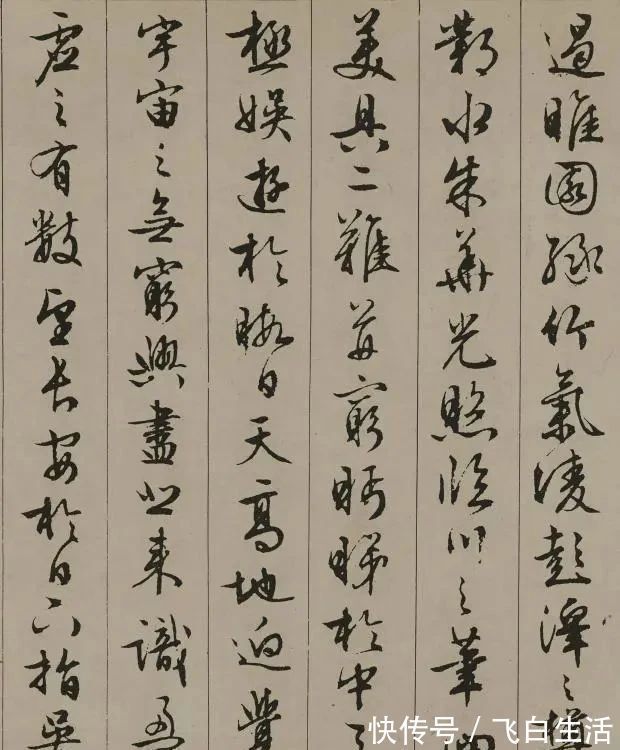 遏睢園綠竹氣凌彭澤之樽
鄴水朱華光照臨川之筆
美具二難并窮眄睇於中
極娛遊於暇日天高地迥覺
宇宙之無窮興盡悲來識盈
虛之有數望長安於日下指吳
快传号 / 飞白生活